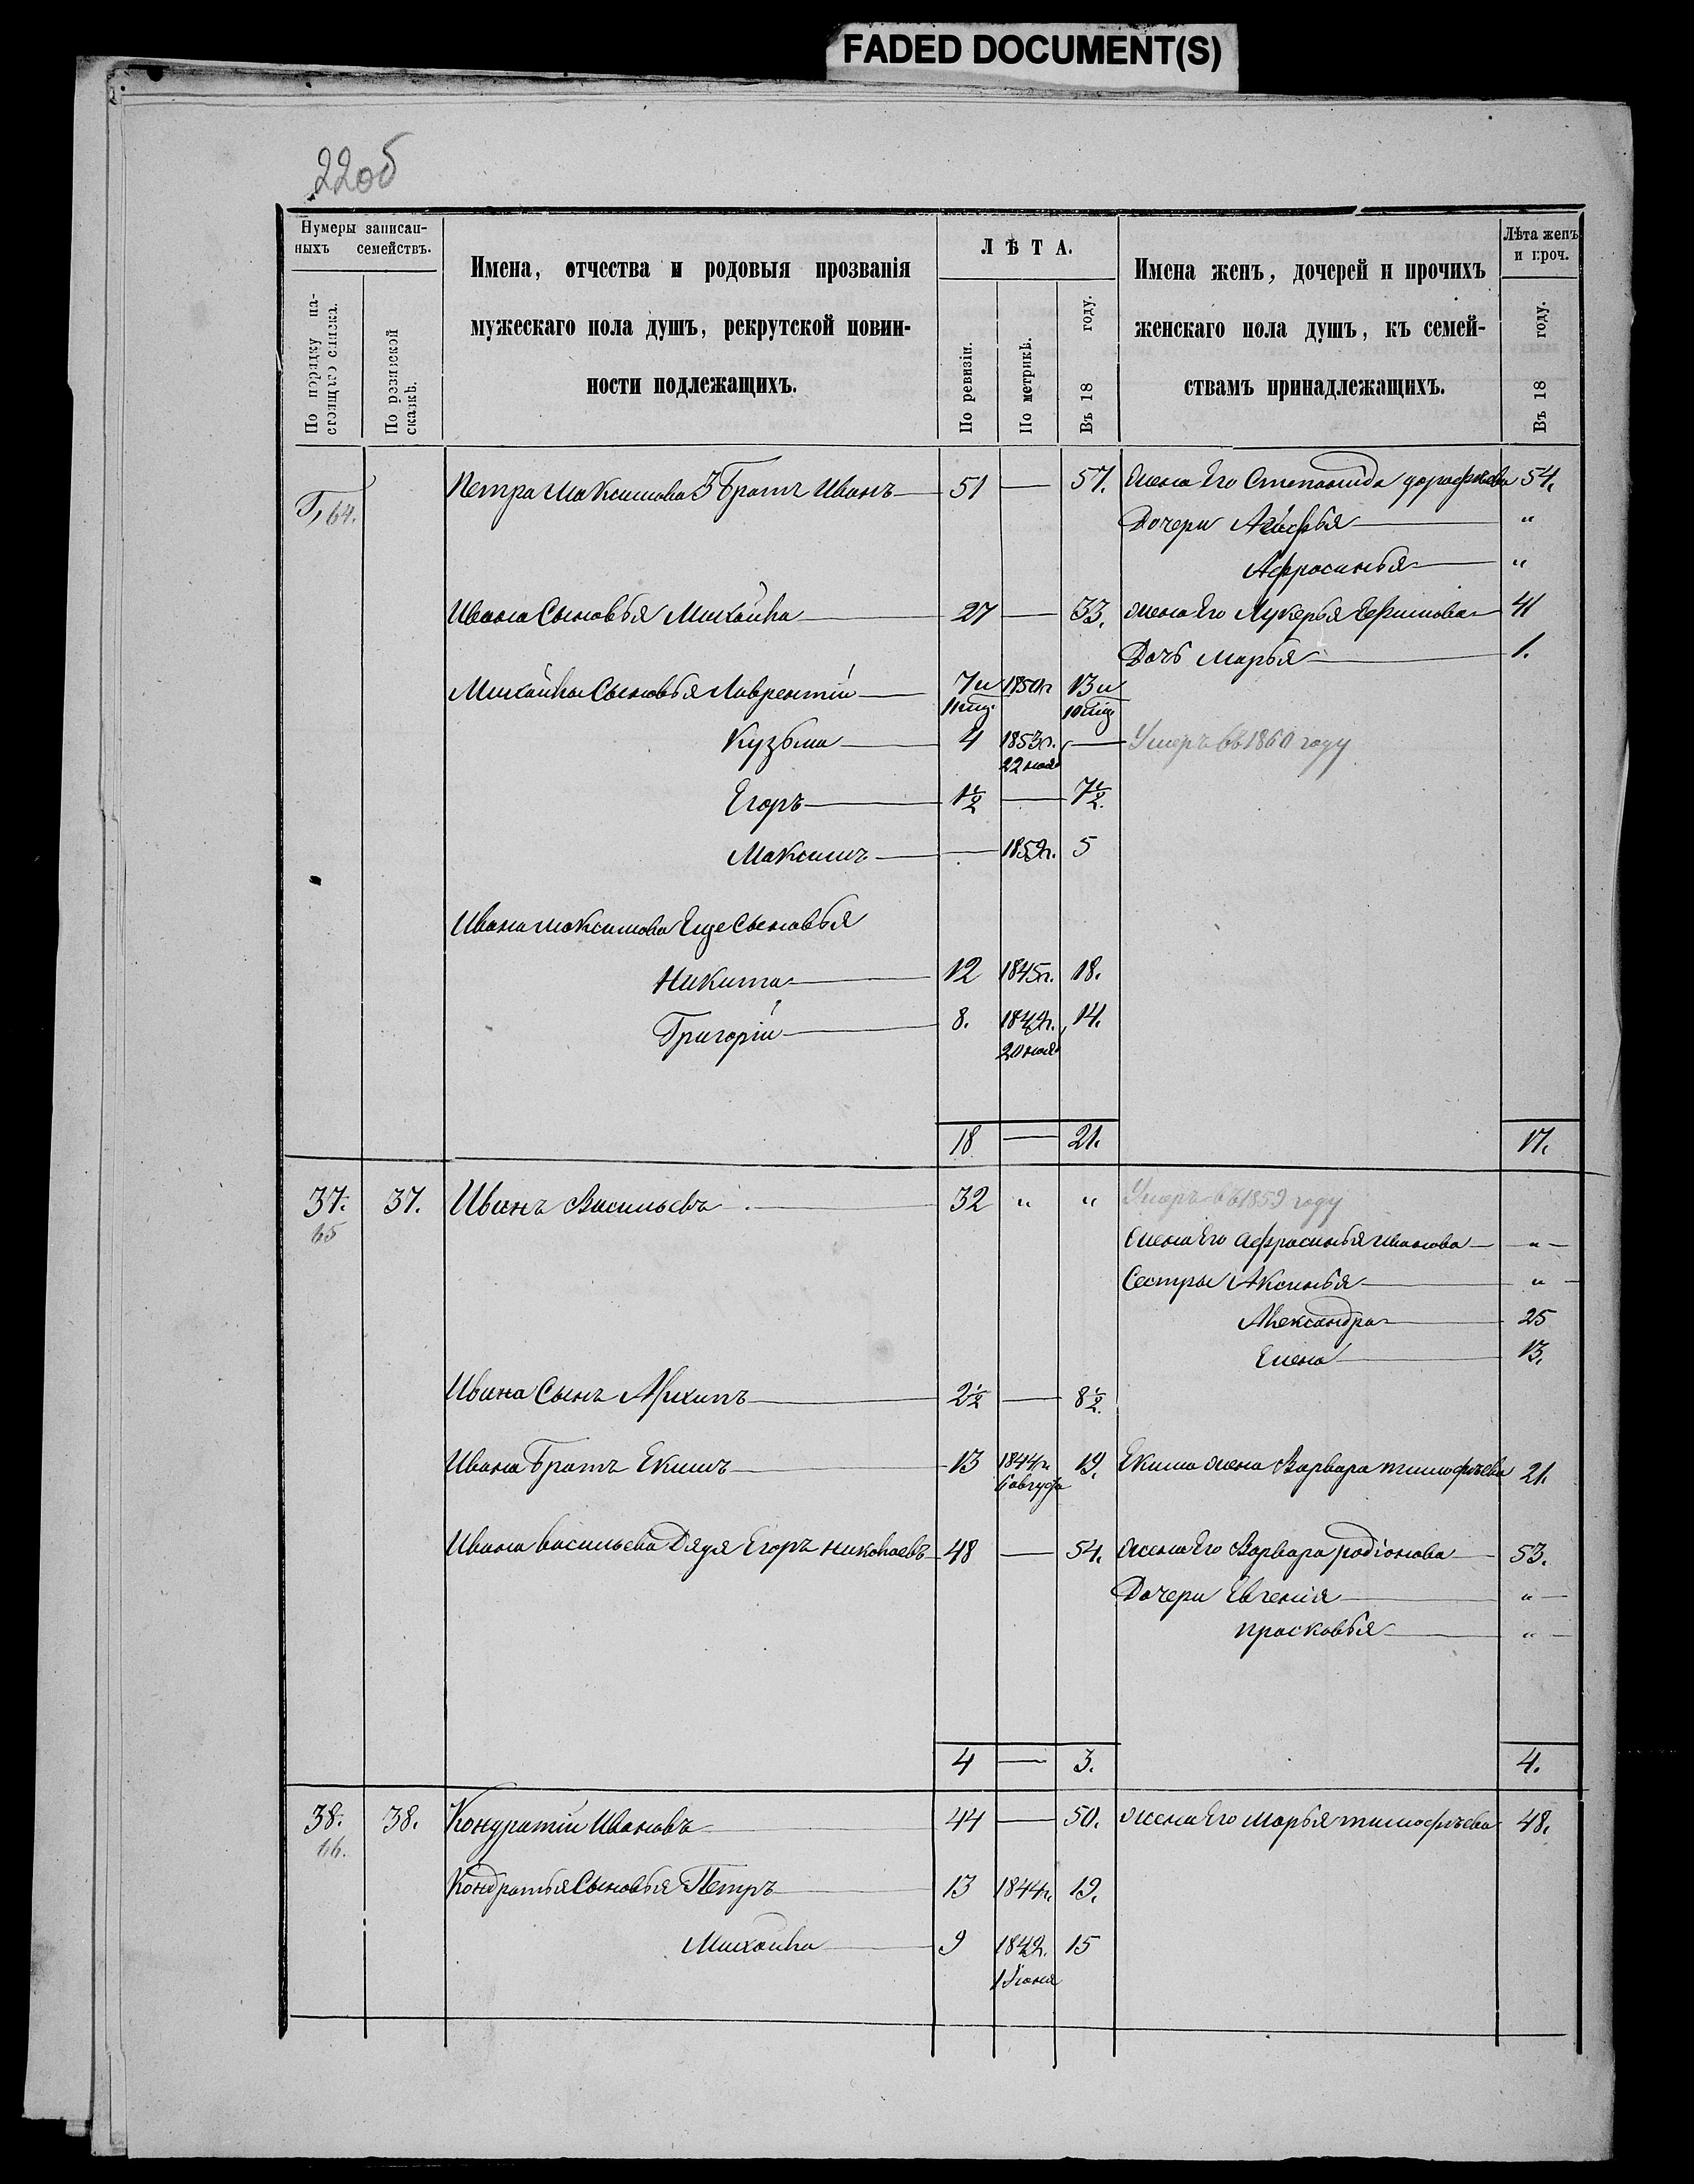 FADED DOCUMENT(S)
22об
Нумеры записан-
ныхъ семействъ.
По порядку на-
стоящаго списка.
По ревизской
сказкѣ.
Имена, отчества и родовыя прозванія
мужескаго пола душъ, рекрутской повин-
ности подлежащихъ.
ЛѢТА.
По ревизіи.
По метрикѣ.
Въ 18 году.
Имена женъ, дочерей и прочихъ
женскаго пола душъ, къ семей-
ствамъ принадлежащихъ.
Лѣта женъ
и проч.
Въ 18 году.
64. Петра Максимова 3 Братъ Иванъ 51 — 57. жена Его Степанида дорофѣева 54.
Дочери Агафья "
Афросинья "
Ивана Сыновья Михайла 27 — 33. жена Его Лукерья Ефимова 41
Дочь Марья 1.
Михайлы Сыновья Лаврентій 7 и 1850г 13 и
11 мц. 10 мц.
Кузьма 4 1853г. — Умеръ въ 1860 году
22 ноя
Егоръ 1½ — 7½.
Максимъ — 1859г. 5
Ивана Максимова Еще Сыновья
Никита 12 1845г. 18.
Григорій 8. 1849г. 14.
20 ноя
18 — 21. 17.
37. 37. Иванъ Васильевъ 32 " " Умеръ въ 1859 году
65 жена Его Афросинья Иванова "
Сестры Аксинья "
Александра 25
Елена 13.
Ивана Сынъ Архипъ 2½ — 8½.
Ивана Братъ Екимъ 13 1844г. 19. Екима жена Варвара тимофѣева 21.
6 авгус
Ивана васильева Дядя Егоръ николаевъ 48 — 54. жена Его Варвара родіонова 53.
Дочери Евгенія "
прасковья "
4 — 3. 4.
38. 38. Кондратій Ивановъ 44 — 50. жена Его Марья тимофѣева 48.
66.
Кондратья Сыновья Петръ 13 1844г. 19.
Михайла 9 1849г. 15
1 Іюня